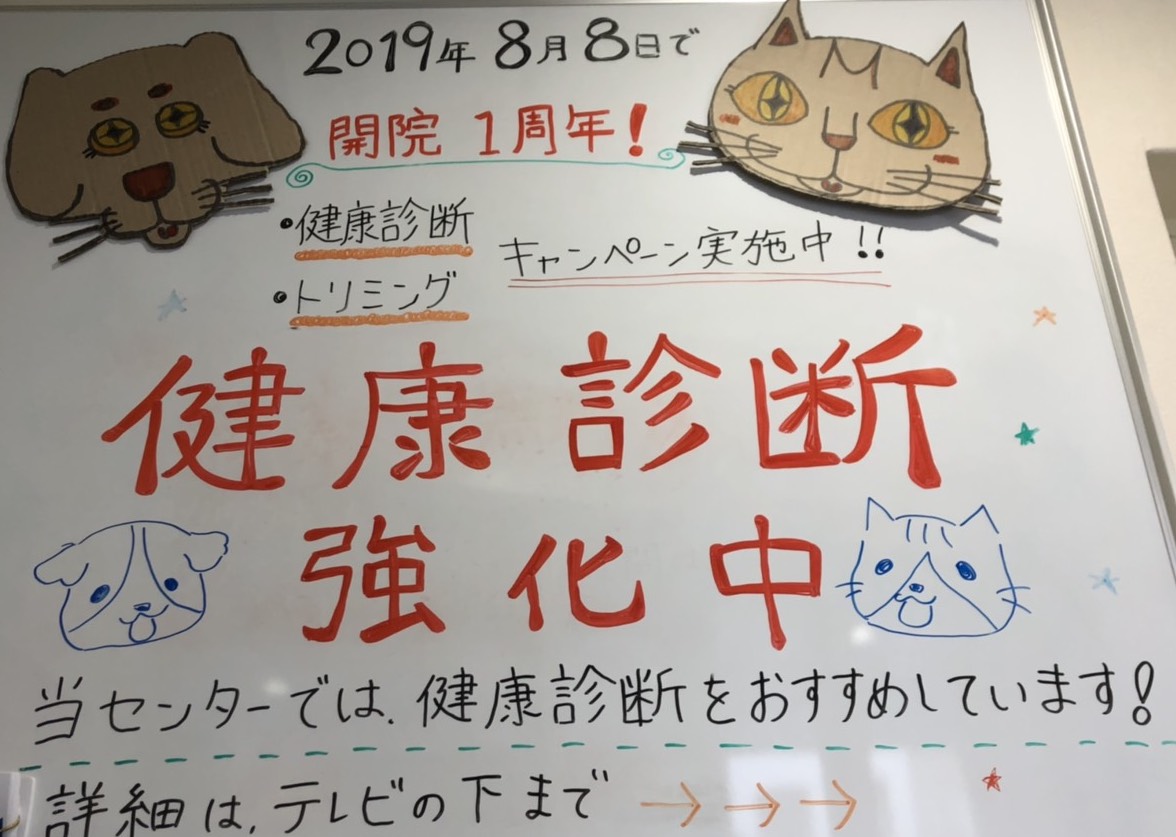 2019年 8月 8日で
開院 1周年!
・健康診断
・トリミング
キャンペーン実施中!!
健康診断
強化中
当センターでは、健康診断をおすすめしています!
詳細は、テレビの下まで →→→